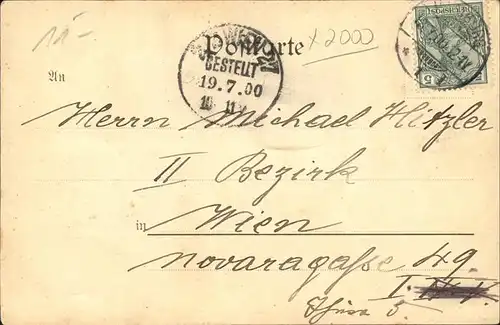 15.-
Postkarte
x 2000
An
BESTELLT
19.7.00
Herrn Michael Hitzler
II Bezirk
in Wien
Novaragasse 49.
I.
5